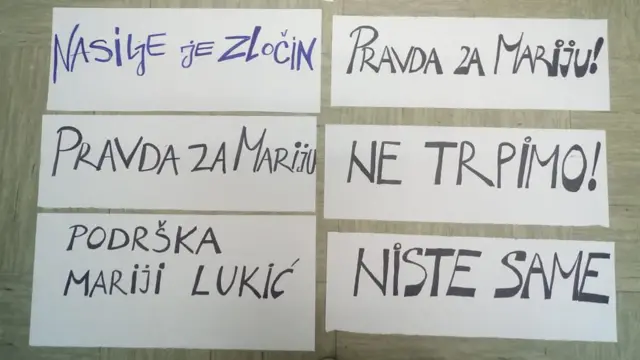 NASILJE JE ZLOČIN
PRAVDA ZA MARIJU!
PRAVDA ZA MARIJU
NE TRPIMO!
PODRŠKA
MARIJI LUKIĆ
NISTE SAME